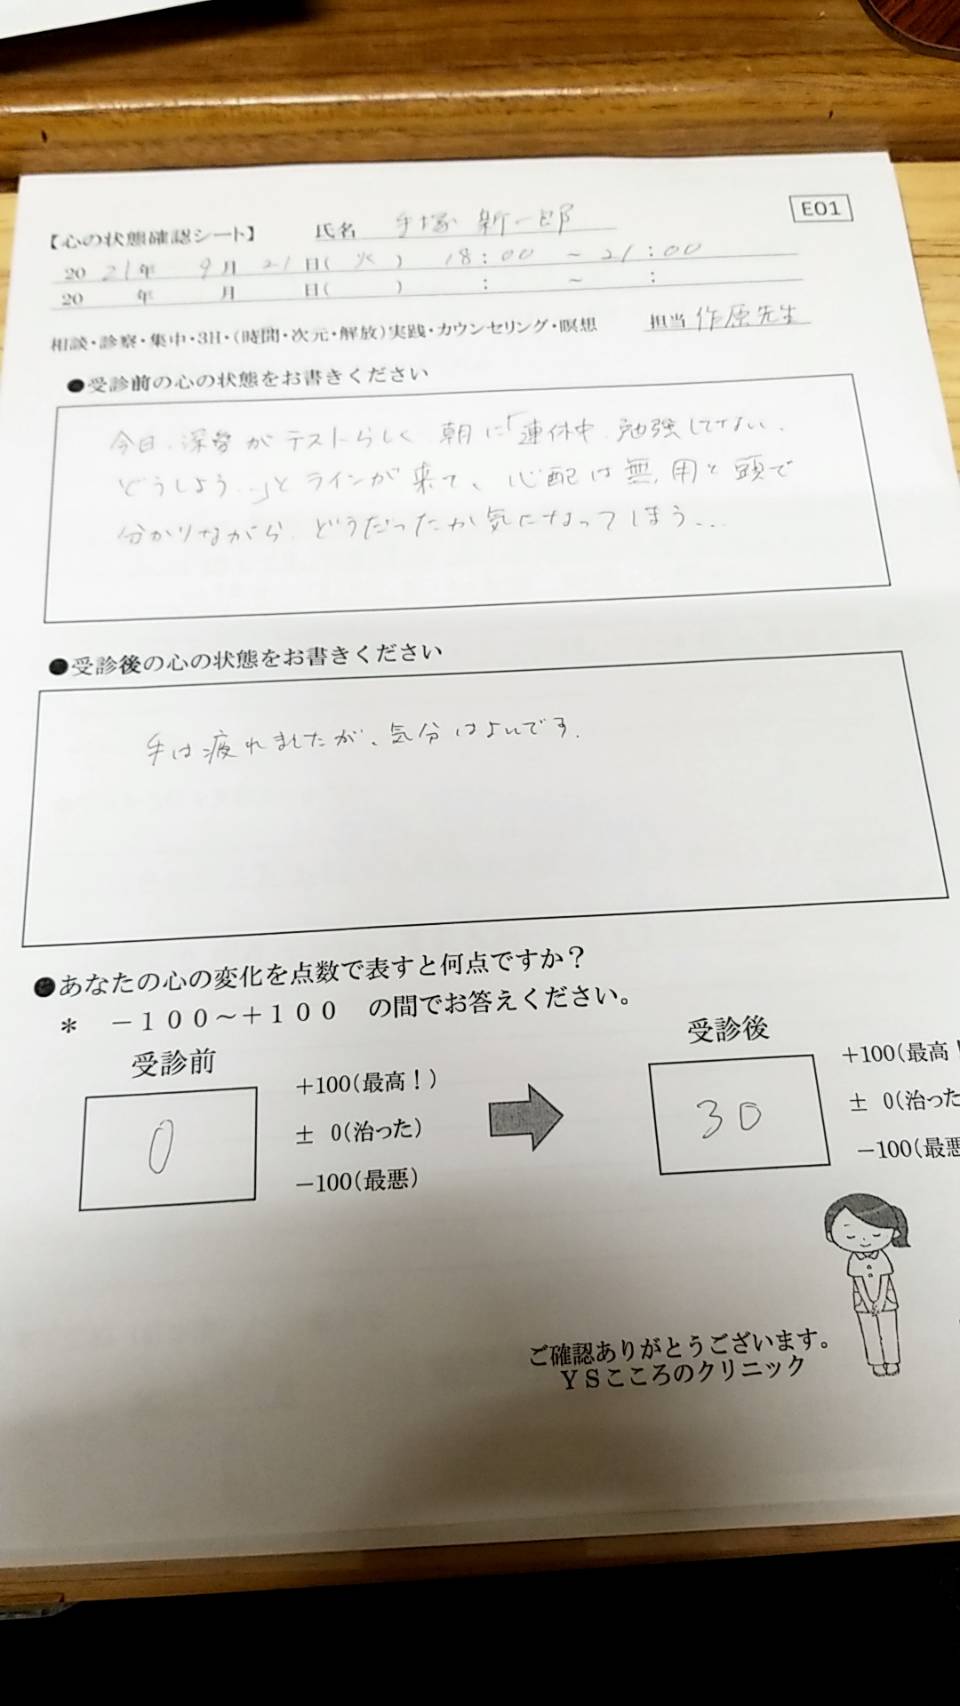 E01
【心の状態確認シート】 氏名 手塚 新一郎
20 21年 9月 21日( 火 ) 18:00 ~ 21:00
20 年 月 日( ) : ~ :
相談・診察・集中・3H・(時間・次元・解放)実践・カウンセリング・瞑想 担当 作原先生
●受診前の心の状態をお書きください
今日、深誉がテストらしく、朝に「連休中、勉強してない、
どうしよう…」とラインが来て、心配は無用と頭で
分かりながら、どうだったか気になってしまう…
●受診後の心の状態をお書きください
手は疲れましたが、気分はよいです。
●あなたの心の変化を点数で表すと何点ですか?
* -100~+100 の間でお答えください。
受診前 受診後
+100(最高!) +100(最高!
0 ± 0(治った) 30 ± 0(治った
-100(最悪) -100(最悪
ご確認ありがとうございます。
YSこころのクリニック